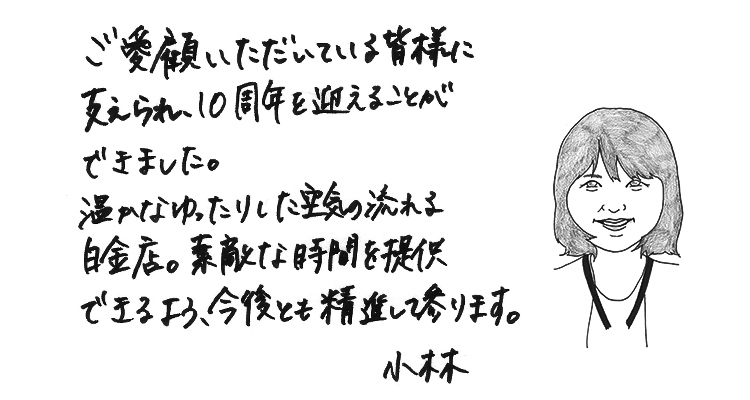 ご愛顧いただいている皆様に
支えられ、10周年を迎えることが
できました。
温かなゆったりした空気の流れる
白金店。素敵な時間を提供
できるよう、今後とも精進して参ります。
小林